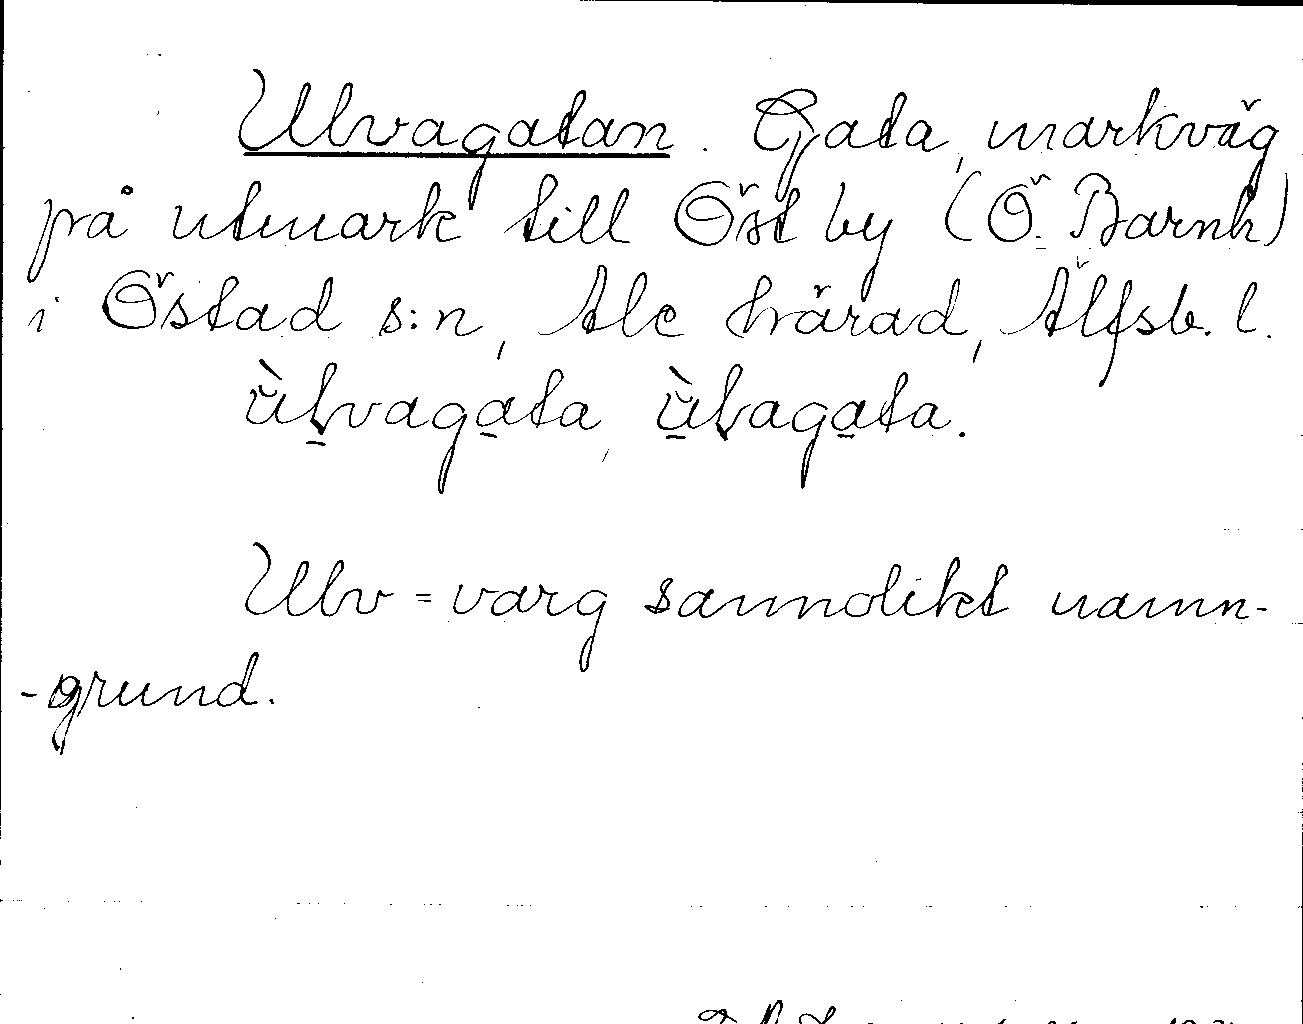 Ulvagatan. Gata, markväg
på utmark till Öst by (Ö. Barnh)
i Östad s:n, Ale härad, Älfsb. l.
ùlvagata, ùlvagata.
Ulv = varg sannolikt namn-
-grund.